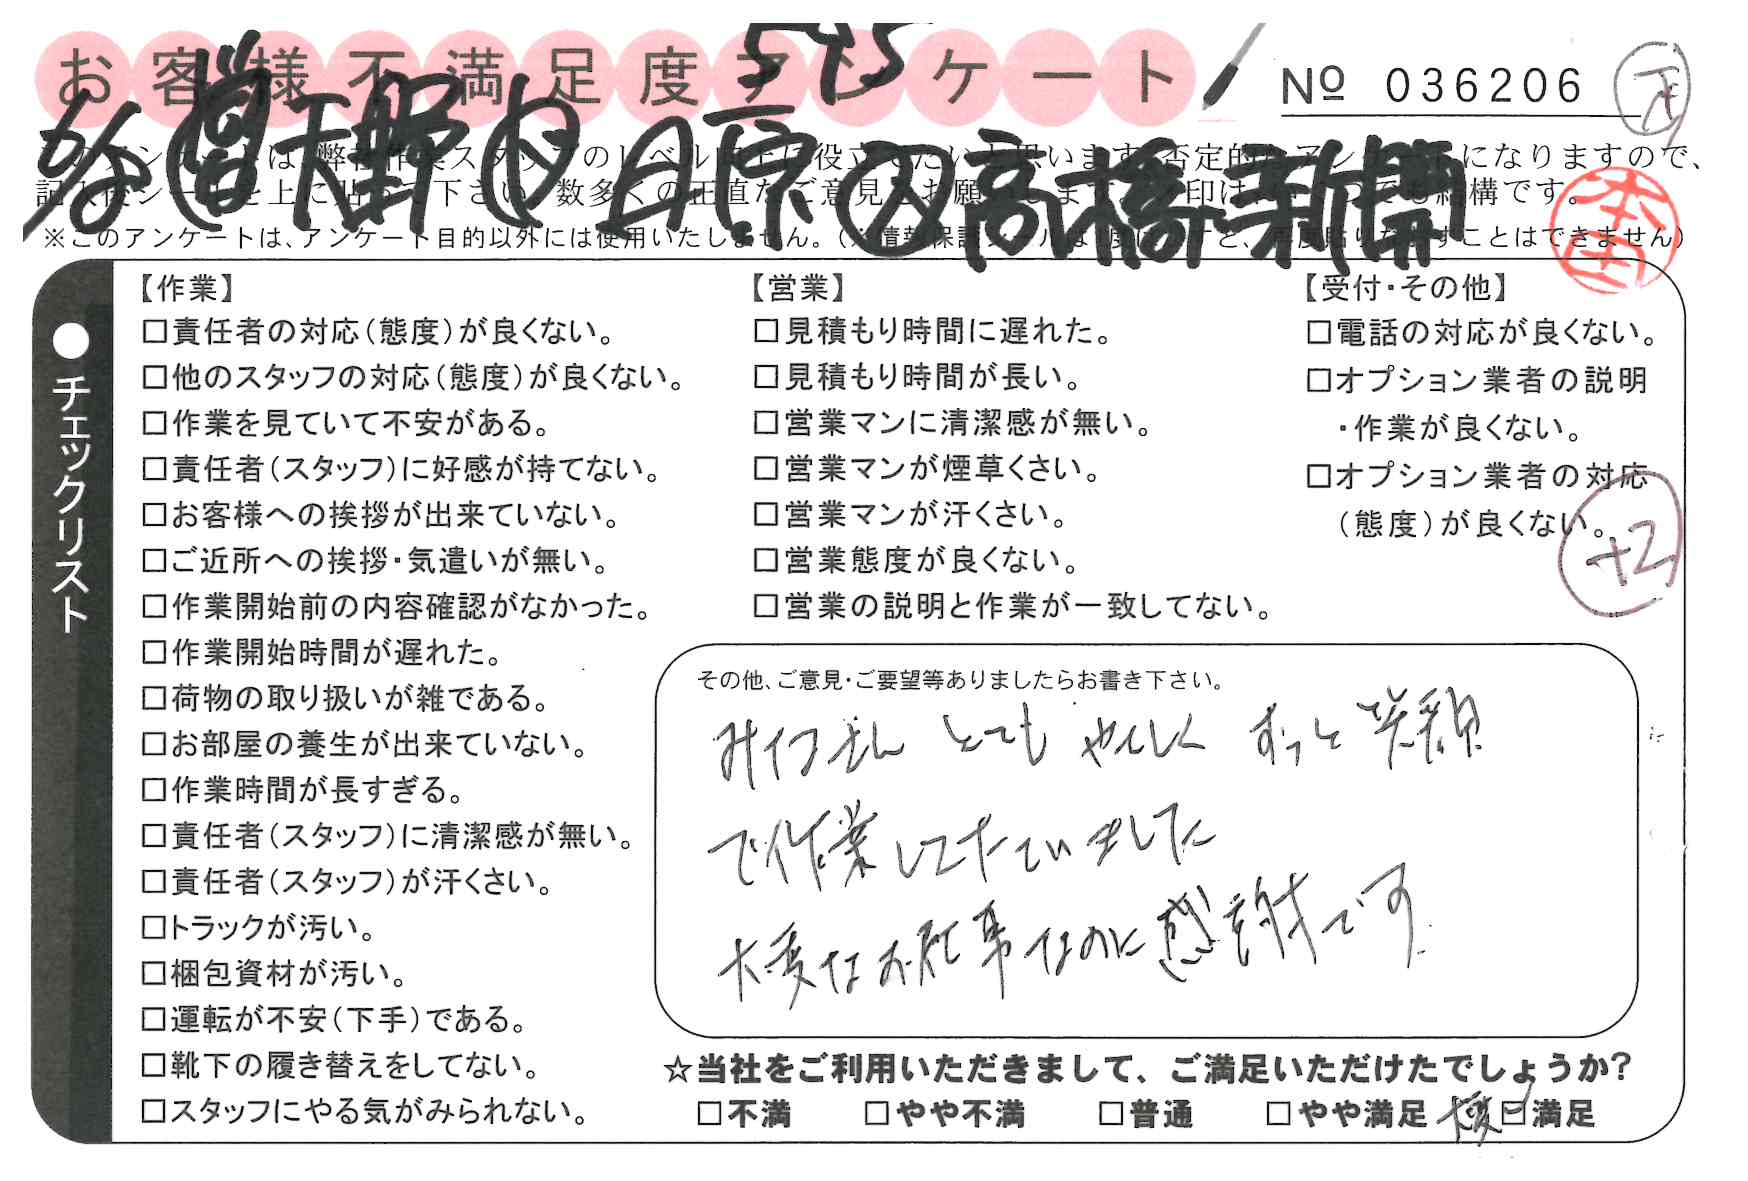 お客様不満足度アンケート
Nº 036206
545
6/3 営 天野 作 日京 又 高橋 新開
※このアンケートは、アンケート目的以外には使用いたしません。
本田
●チェックリスト
【作業】
□責任者の対応(態度)が良くない。
□他のスタッフの対応(態度)が良くない。
□作業を見ていて不安がある。
□責任者(スタッフ)に好感が持てない。
□お客様への挨拶が出来ていない。
□ご近所への挨拶・気遣いが無い。
□作業開始前の内容確認がなかった。
□作業開始時間が遅れた。
□荷物の取り扱いが雑である。
□お部屋の養生が出来ていない。
□作業時間が長すぎる。
□責任者(スタッフ)に清潔感が無い。
□責任者(スタッフ)が汗くさい。
□トラックが汚い。
□梱包資材が汚い。
□運転が不安(下手)である。
□靴下の履き替えをしてない。
□スタッフにやる気がみられない。
【営業】
□見積もり時間に遅れた。
□見積もり時間が長い。
□営業マンに清潔感が無い。
□営業マンが煙草くさい。
□営業マンが汗くさい。
□営業態度が良くない。
□営業の説明と作業が一致してない。
【受付・その他】
□電話の対応が良くない。
□オプション業者の説明
・作業が良くない。
□オプション業者の対応
(態度)が良くない。
+2
その他、ご意見・ご要望等ありましたらお書き下さい。
みなさん とても やさしく ずっと 笑顔
で作業して下さいました
大変なお仕事なのに感謝です
☆当社をご利用いただきまして、ご満足いただけたでしょうか?
□不満 □やや不満 □普通 □やや満足 大変 □満足